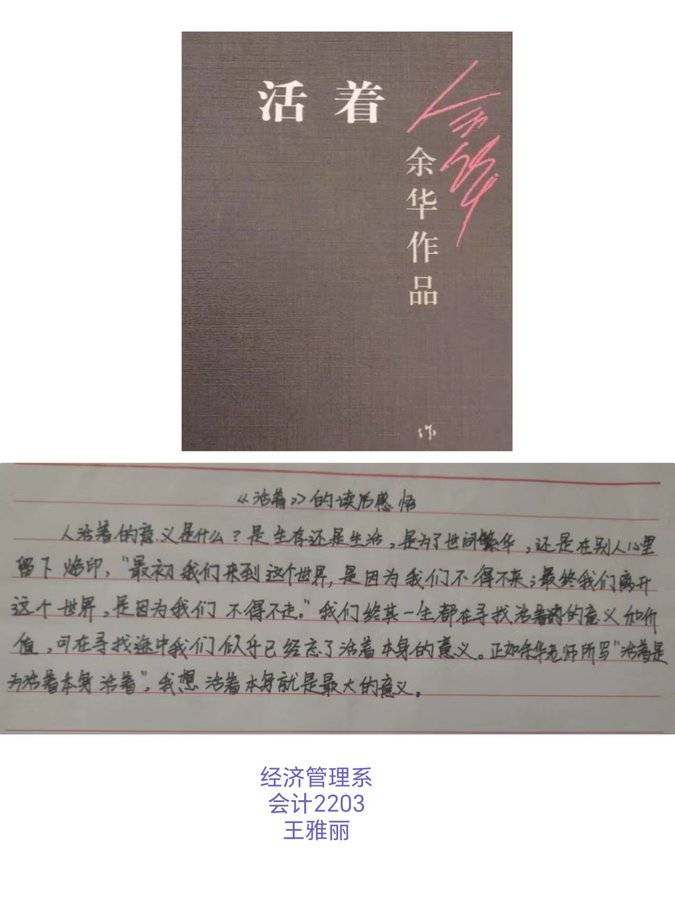 活着
余华
余华作品
作
《活着》的读后感悟
人活着的意义是什么？是生存还是生活，是为了世间繁华，还是在别人心里
留下烙印，“最初我们来到这个世界，是因为我们不得不来；最终我们离开
这个世界，是因为我们不得不走。”我们终其一生都在寻找活着的意义和价
值，可在寻找途中我们似乎已经忘了活着本身的意义。正如余华老师所写“活着是
为活着本身活着”，我想活着本身就是最大的意义。
经济管理系
会计2203
王雅丽